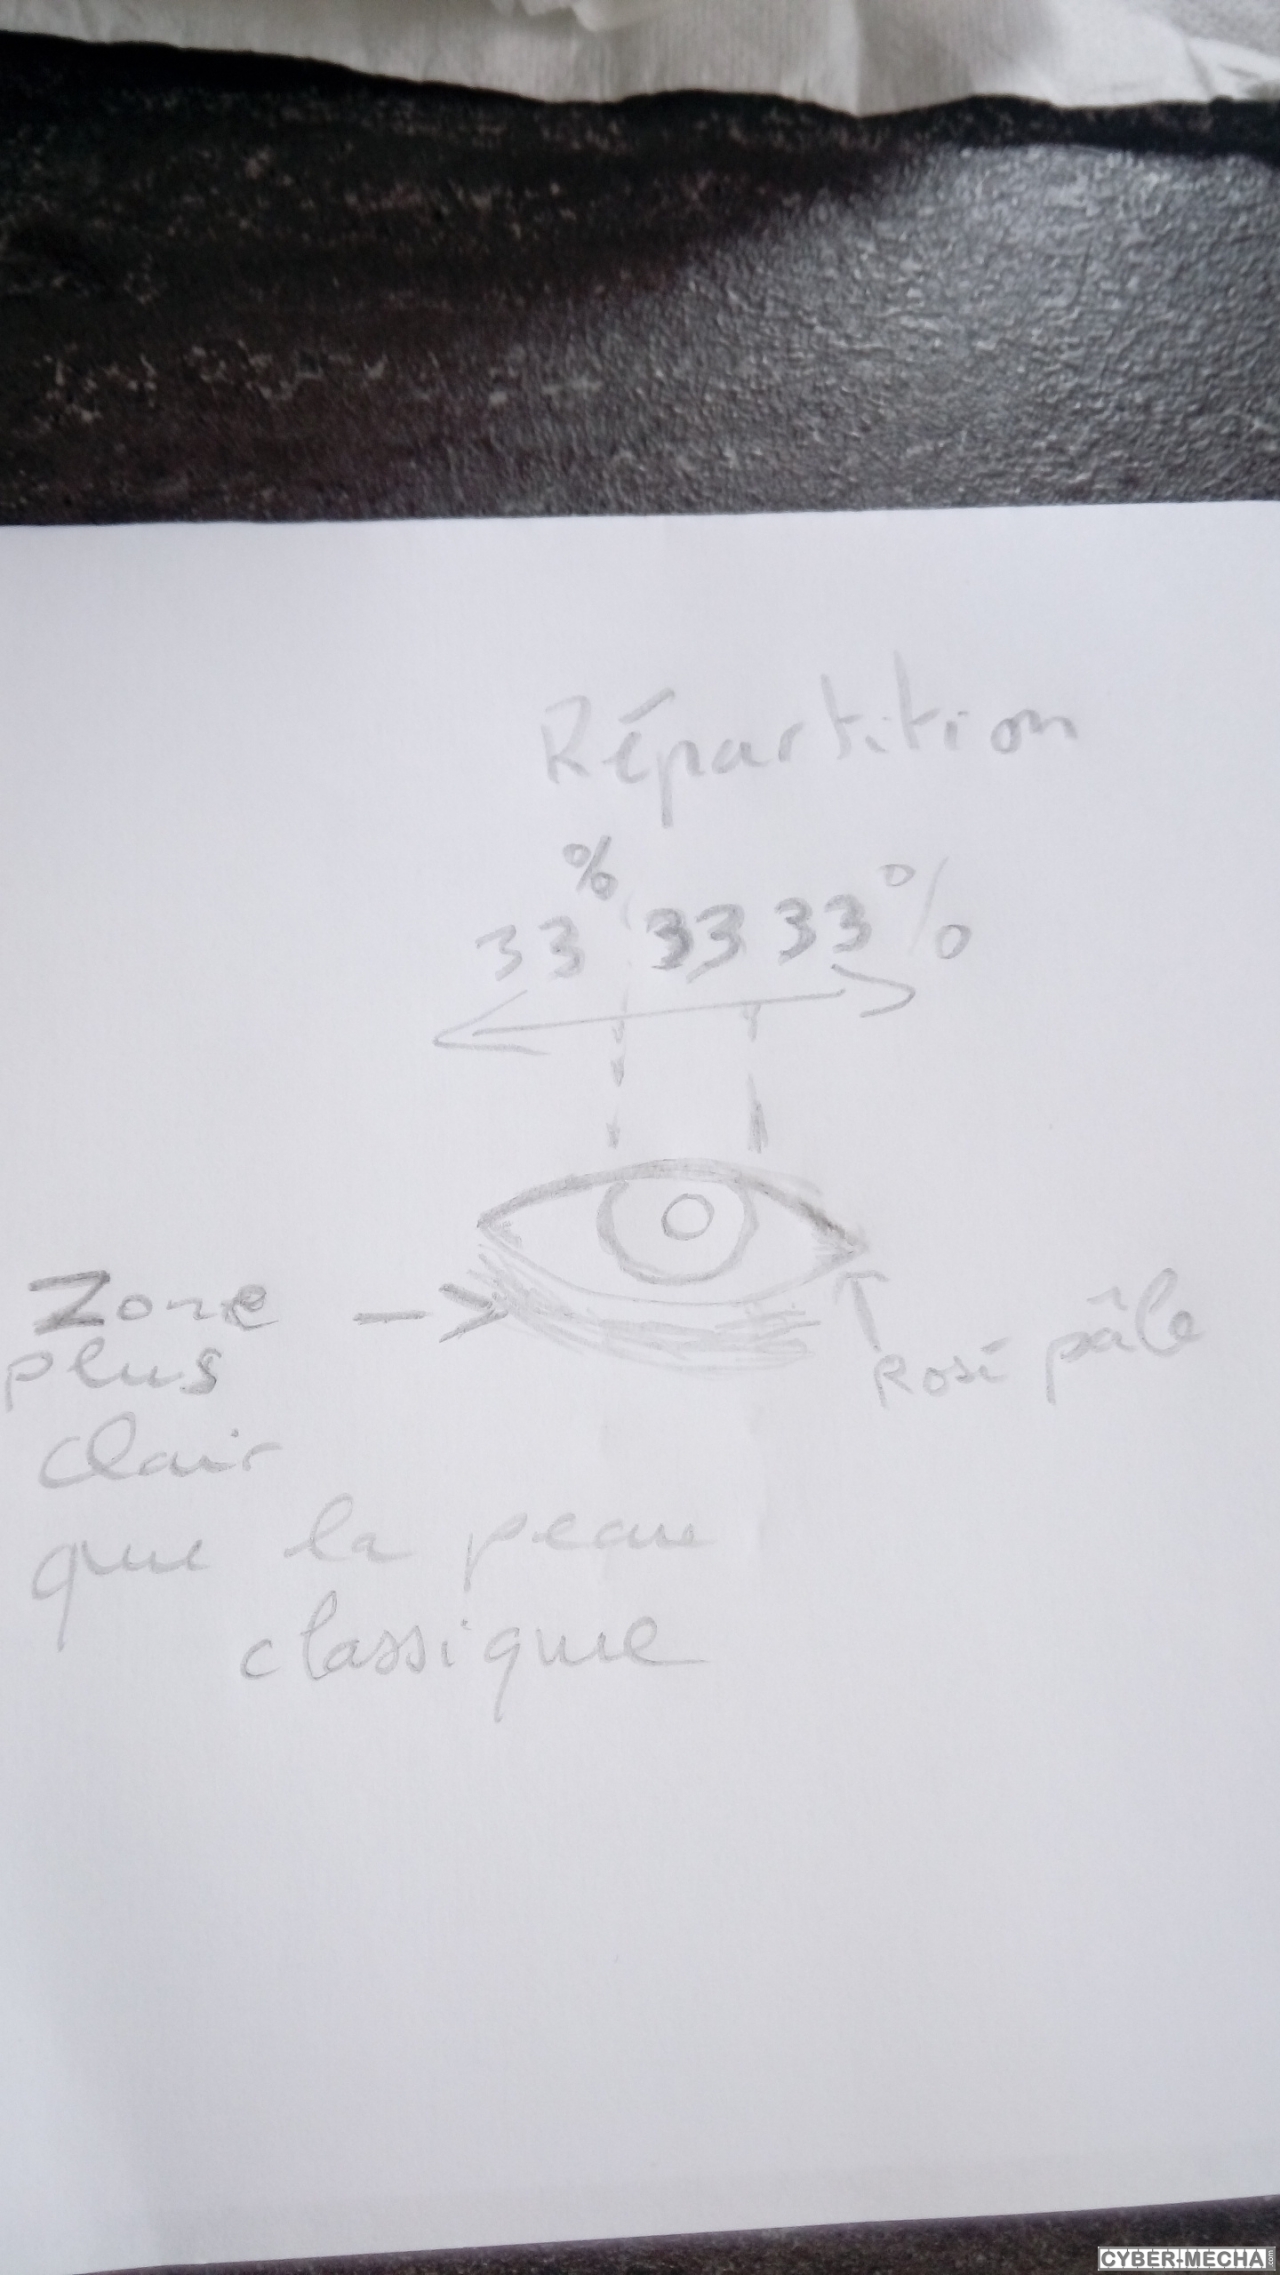 Répartition
33% 33 33%
Zone
plus
clair
que la peau
classique
Rosé pâle
CYBER-MECHA.com